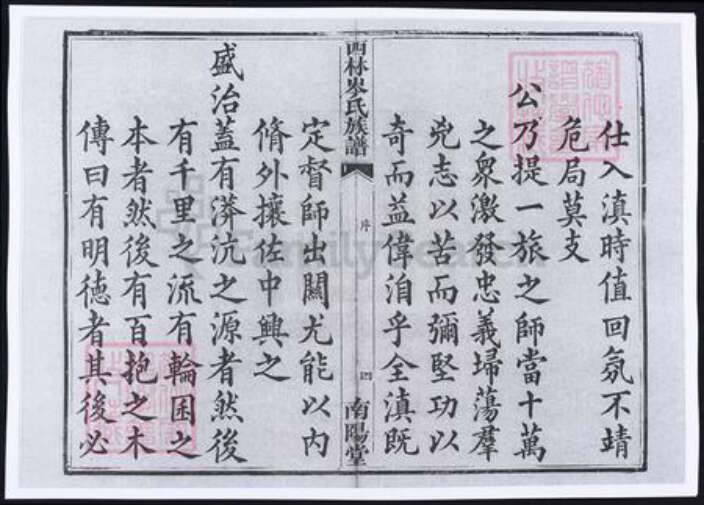 仕入滇時值回氛不靖
危局莫支
公乃提一旅之師當十萬
之衆激發忠義埽蕩羣
兇志以苦而彌堅功以
奇而益偉洎乎全滇既
西林岑氏族譜
序
四
南陽堂
定督師出關尤能以內
脩外攘佐中興之
盛治蓋有漭沆之源者然後
有千里之流有輪囷之
本者然後有百抱之木
傳曰有明德者其後必
FamilySearch